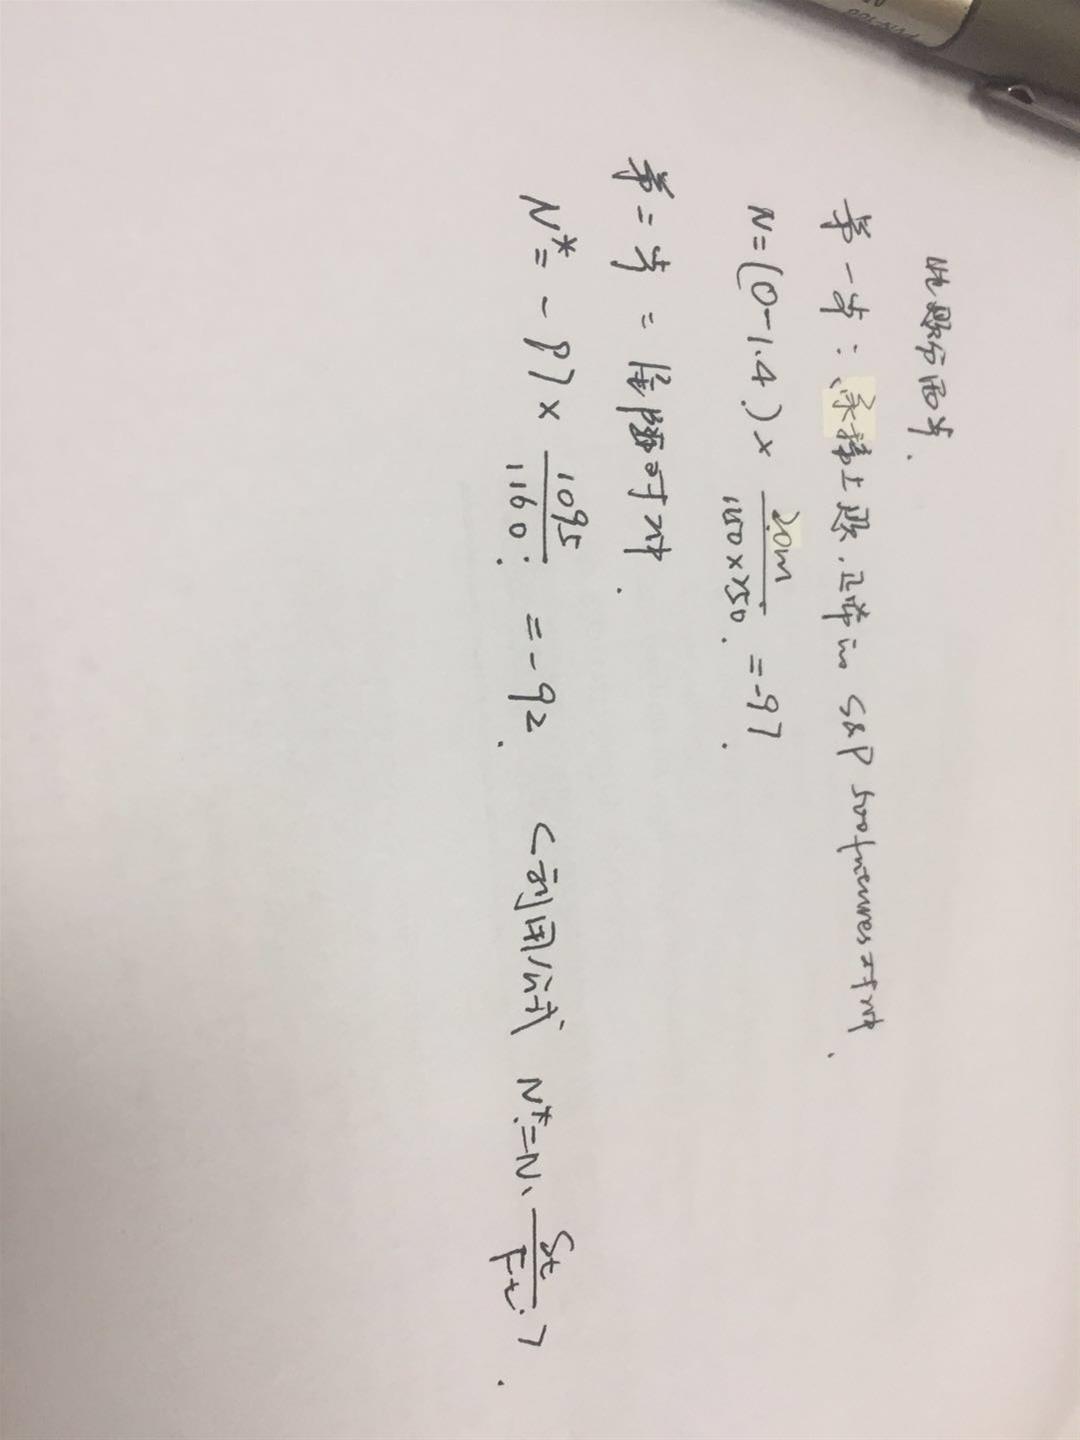 此题分两步.
第一步: 承接上题. 正常 in S&P 500 futures 对冲.
N=(0-1.4)× 20m / 1150×250. =-97.
第二步: 信隆对冲.
N*=-97× 1095 / 1160. =-92. <利用公式 N*=N. St / Ft.>.